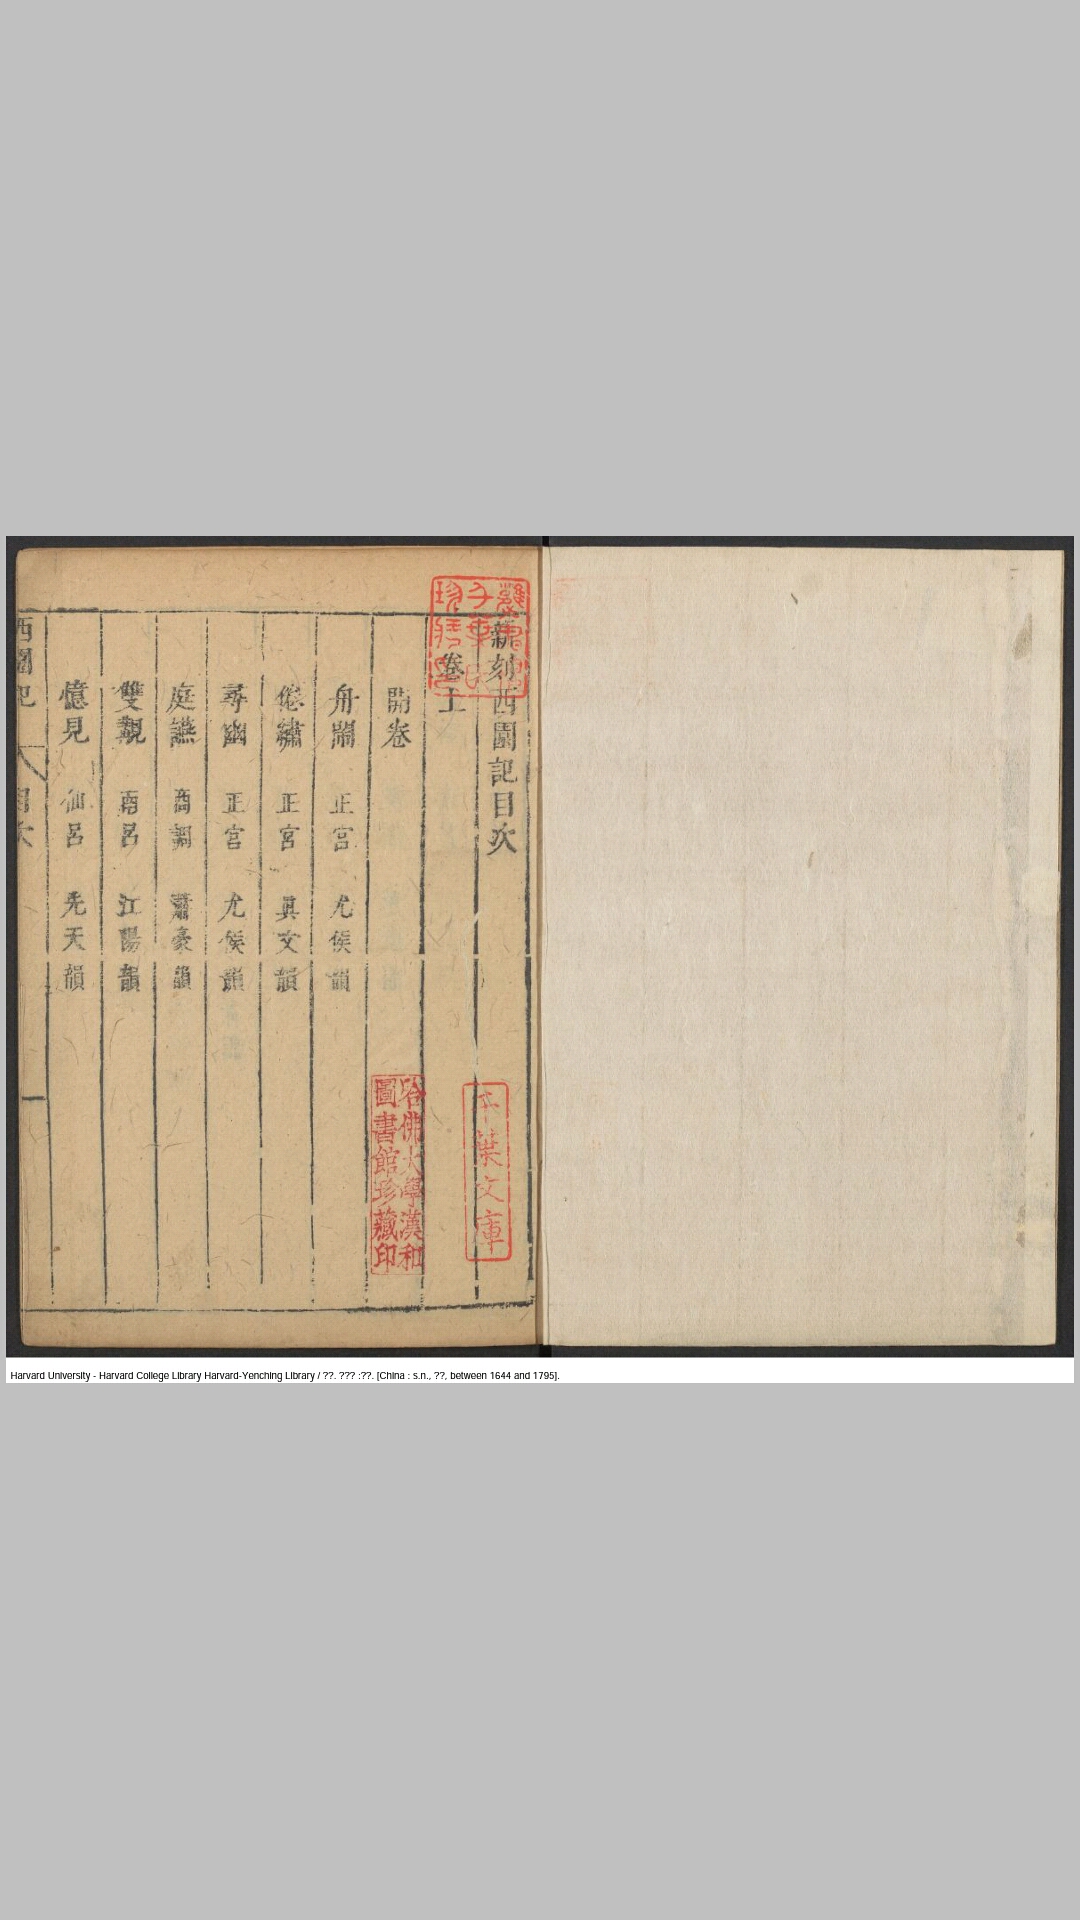 新刻西園記目次
卷上
開卷
舟鬧 正宮 尤侯韻
倦繡 正宮 眞文韻
尋幽 正宮 尤侯韻
庭讌 商調 蕭豪韻
雙覯 南呂 江陽韻
憶見 仙呂 先天韻
西園記 目次 一
千葉文庫
哈佛大學漢和
圖書館珍藏印
Harvard University - Harvard College Library Harvard-Yenching Library / ??. ??? :??. [China : s.n., ??, between 1644 and 1795].